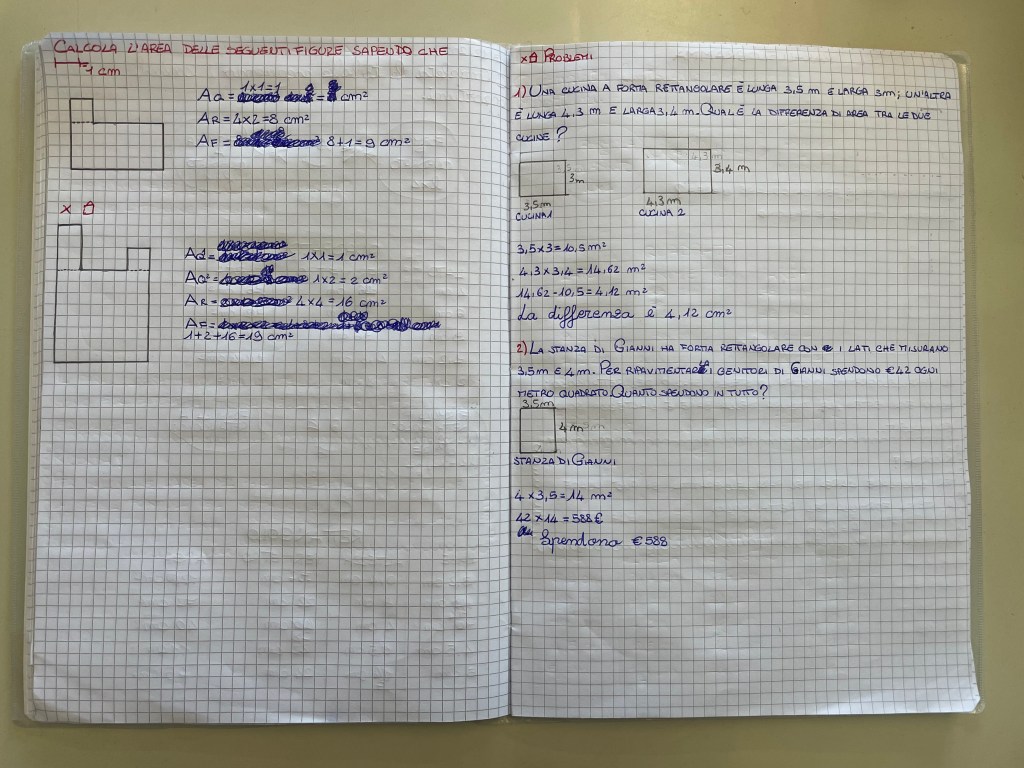 CALCOLA L'AREA DELLE SEGUENTI FIGURE SAPENDO CHE
1 cm
1×1=1
AQ = = cm²
AR = 4×2=8 cm²
AF = 8+1=9 cm²
x
1×1= 1 cm²
1×2 = 2 cm²
AR = 4×4 = 16 cm²
AF =
1+2+16=19 cm²
PROBLEMI
1) UNA CUCINA A FORMA RETTANGOLARE È LUNGA 3,5 m E LARGA 3m; UN'ALTRA
È LUNGA 4,3 m E LARGA 3,4 m. QUAL È LA DIFFERENZA DI AREA TRA LE DUE
CUCINE?
3m
3,5m
CUCINA 1
3,4 m
4,3 m
CUCINA 2
3,5×3=10,5 m²
4,3×3,4=14,62 m²
14,62-10,5=4,12 m²
La differenza è 4,12 cm²
2) LA STANZA DI GIANNI HA FORMA RETTANGOLARE CON I LATI CHE MISURANO
3,5m E 4m. PER RIPAVIMENTARE I GENITORI DI GIANNI SPENDONO €42 OGNI
METRO QUADRATO. QUANTO SPENDONO IN TUTTO?
3,5m
4 m
STANZA DI GIANNI
4×3,5=14 m²
42×14=588€
Spendono €588